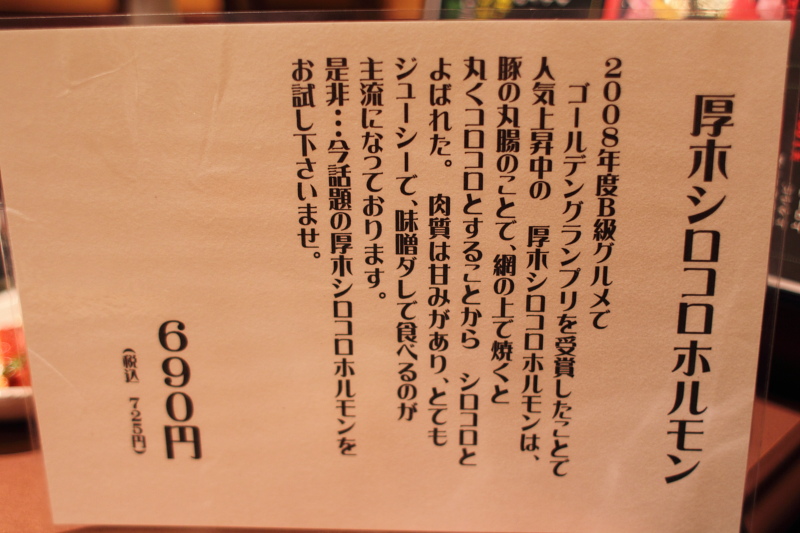 厚木シロコロホルモン
2008年度B級グルメで
ゴールデングランプリを受賞したことで
人気上昇中の 厚木シロコロホルモンは、
豚の丸腸のことで、網の上で焼くと
丸くコロコロとすることから シロコロと
よばれた。 肉質は甘みがあり、とても
ジューシーで、味噌ダレで食べるのが
主流になっております。
是非…今話題の厚木シロコロホルモンを
お試し下さいませ。
690円
(税込 725円)